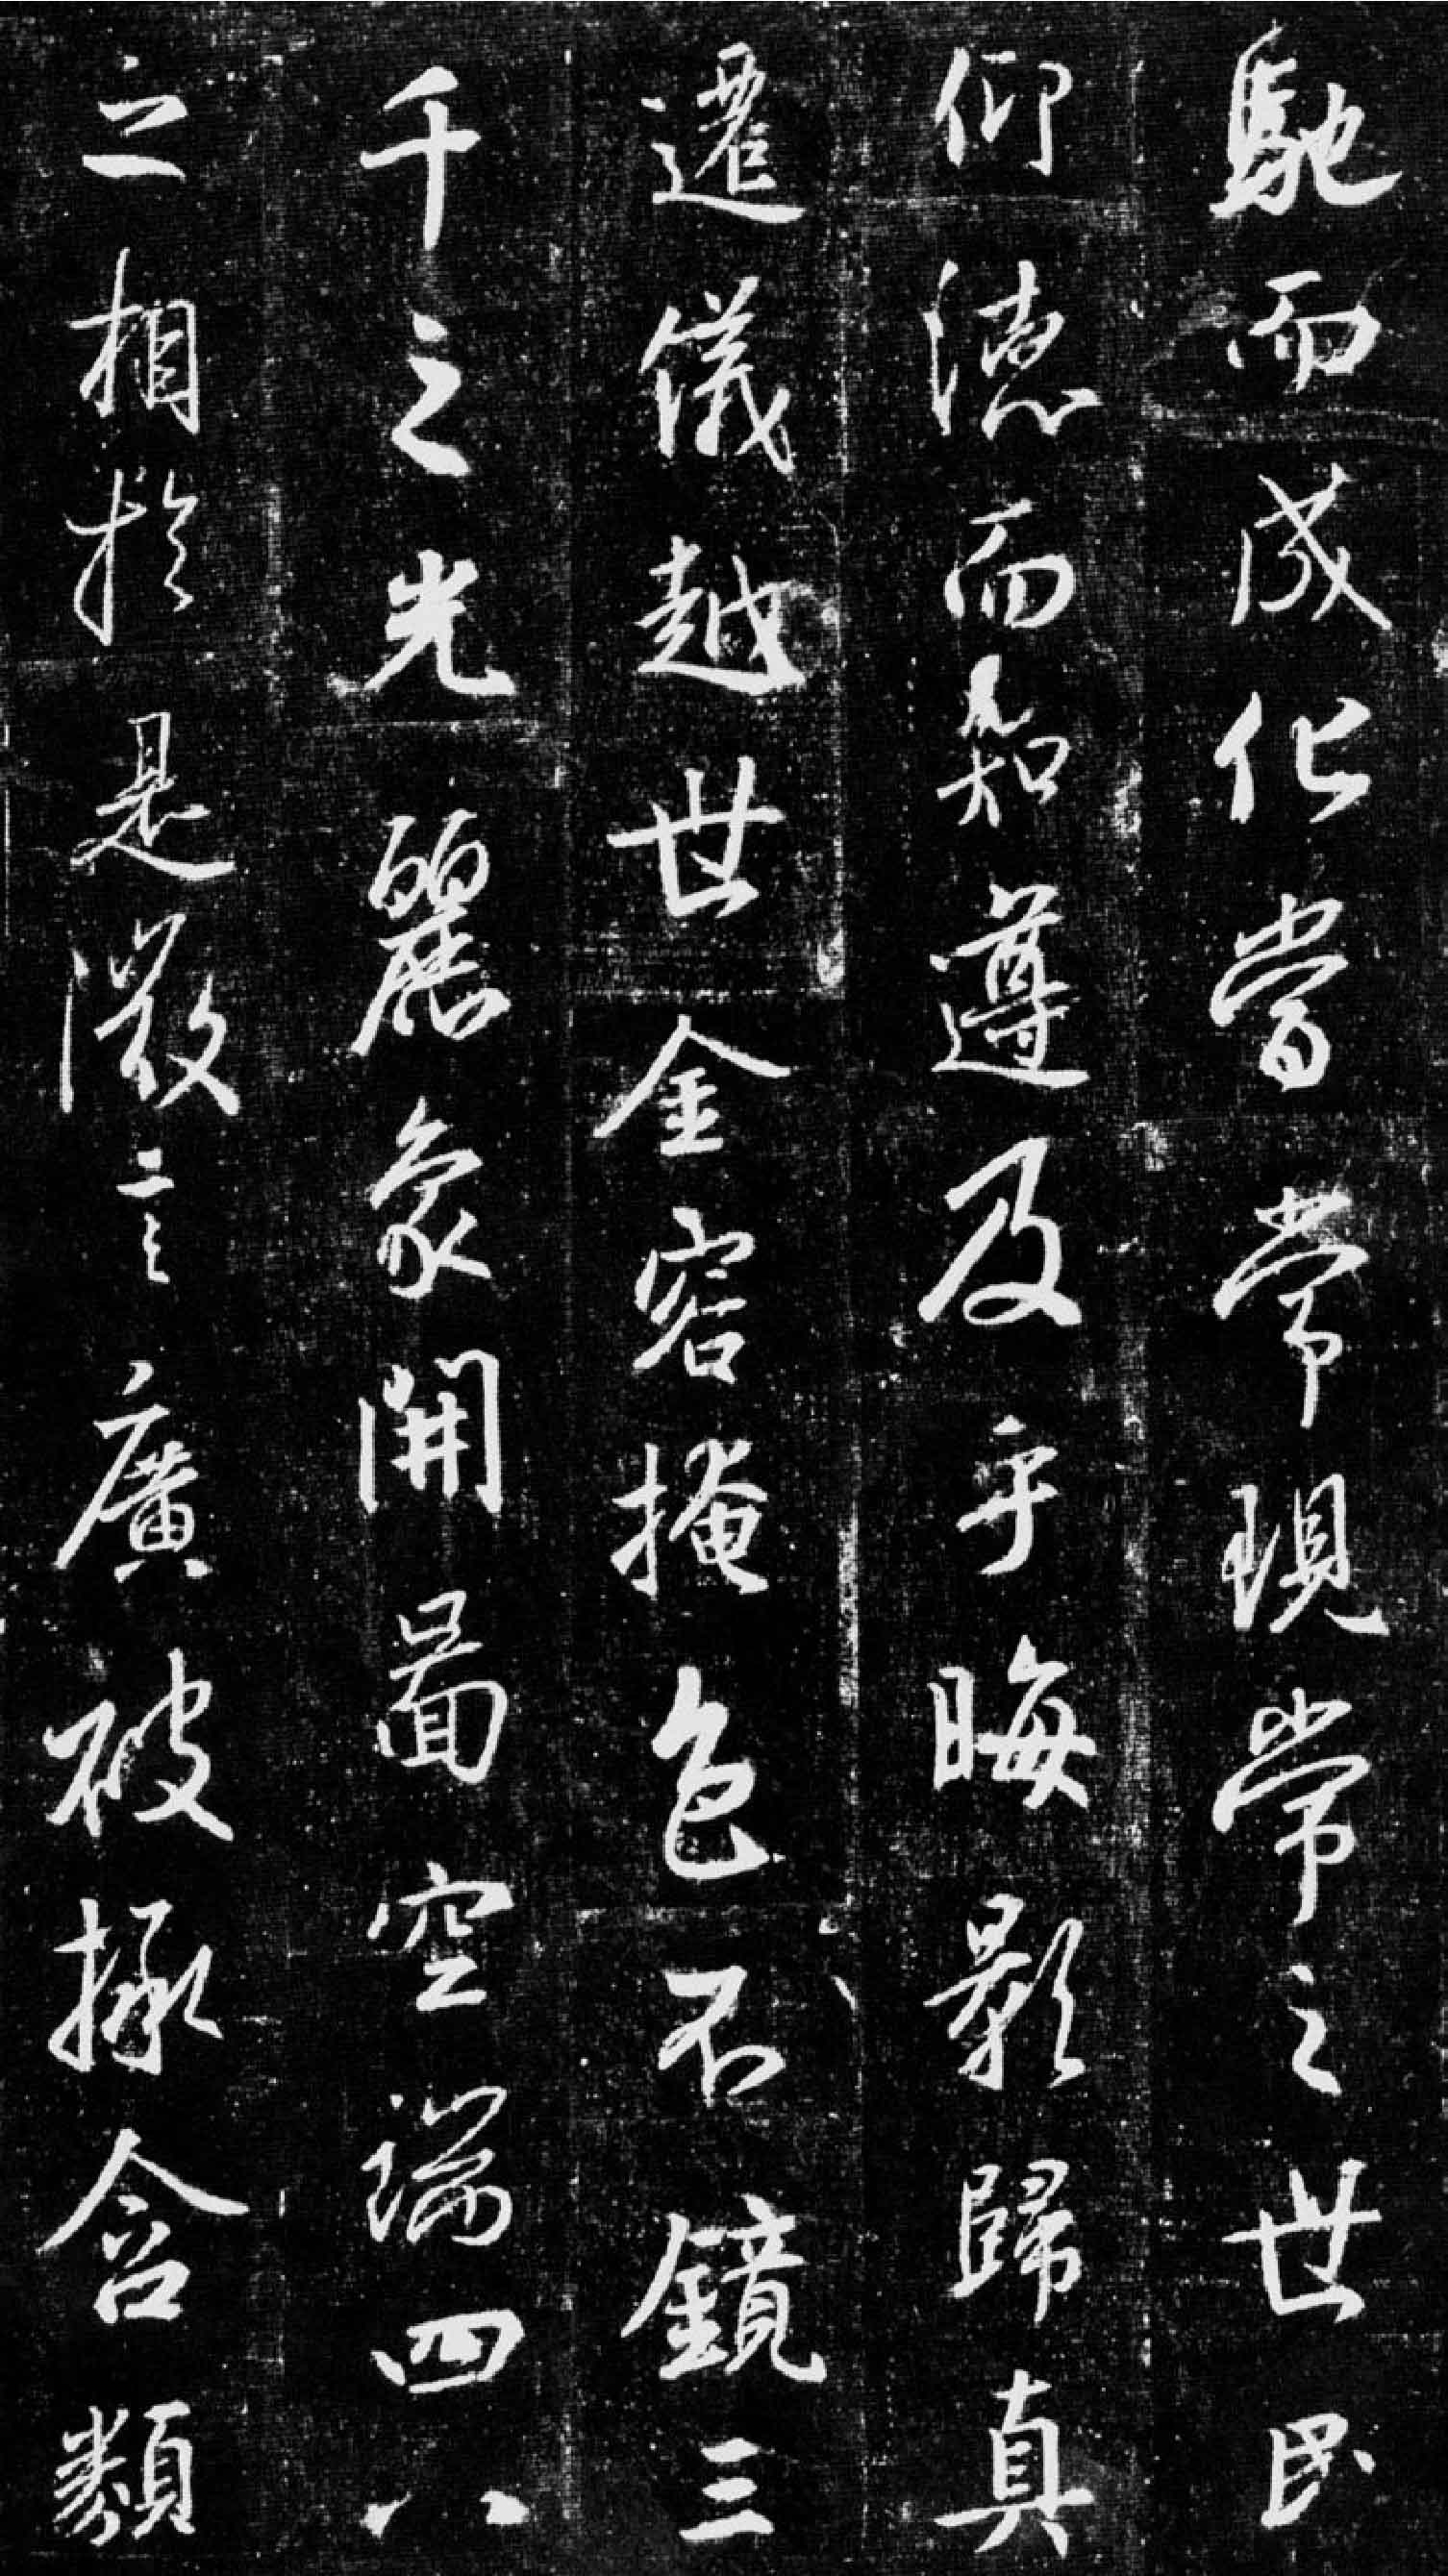 馳而成化當常現常之世民
仰德而知遵及乎晦影歸真
遷儀越世金容掩色不鏡三
千之光麗象開圖空端四八
之相於是微言廣被拯含類